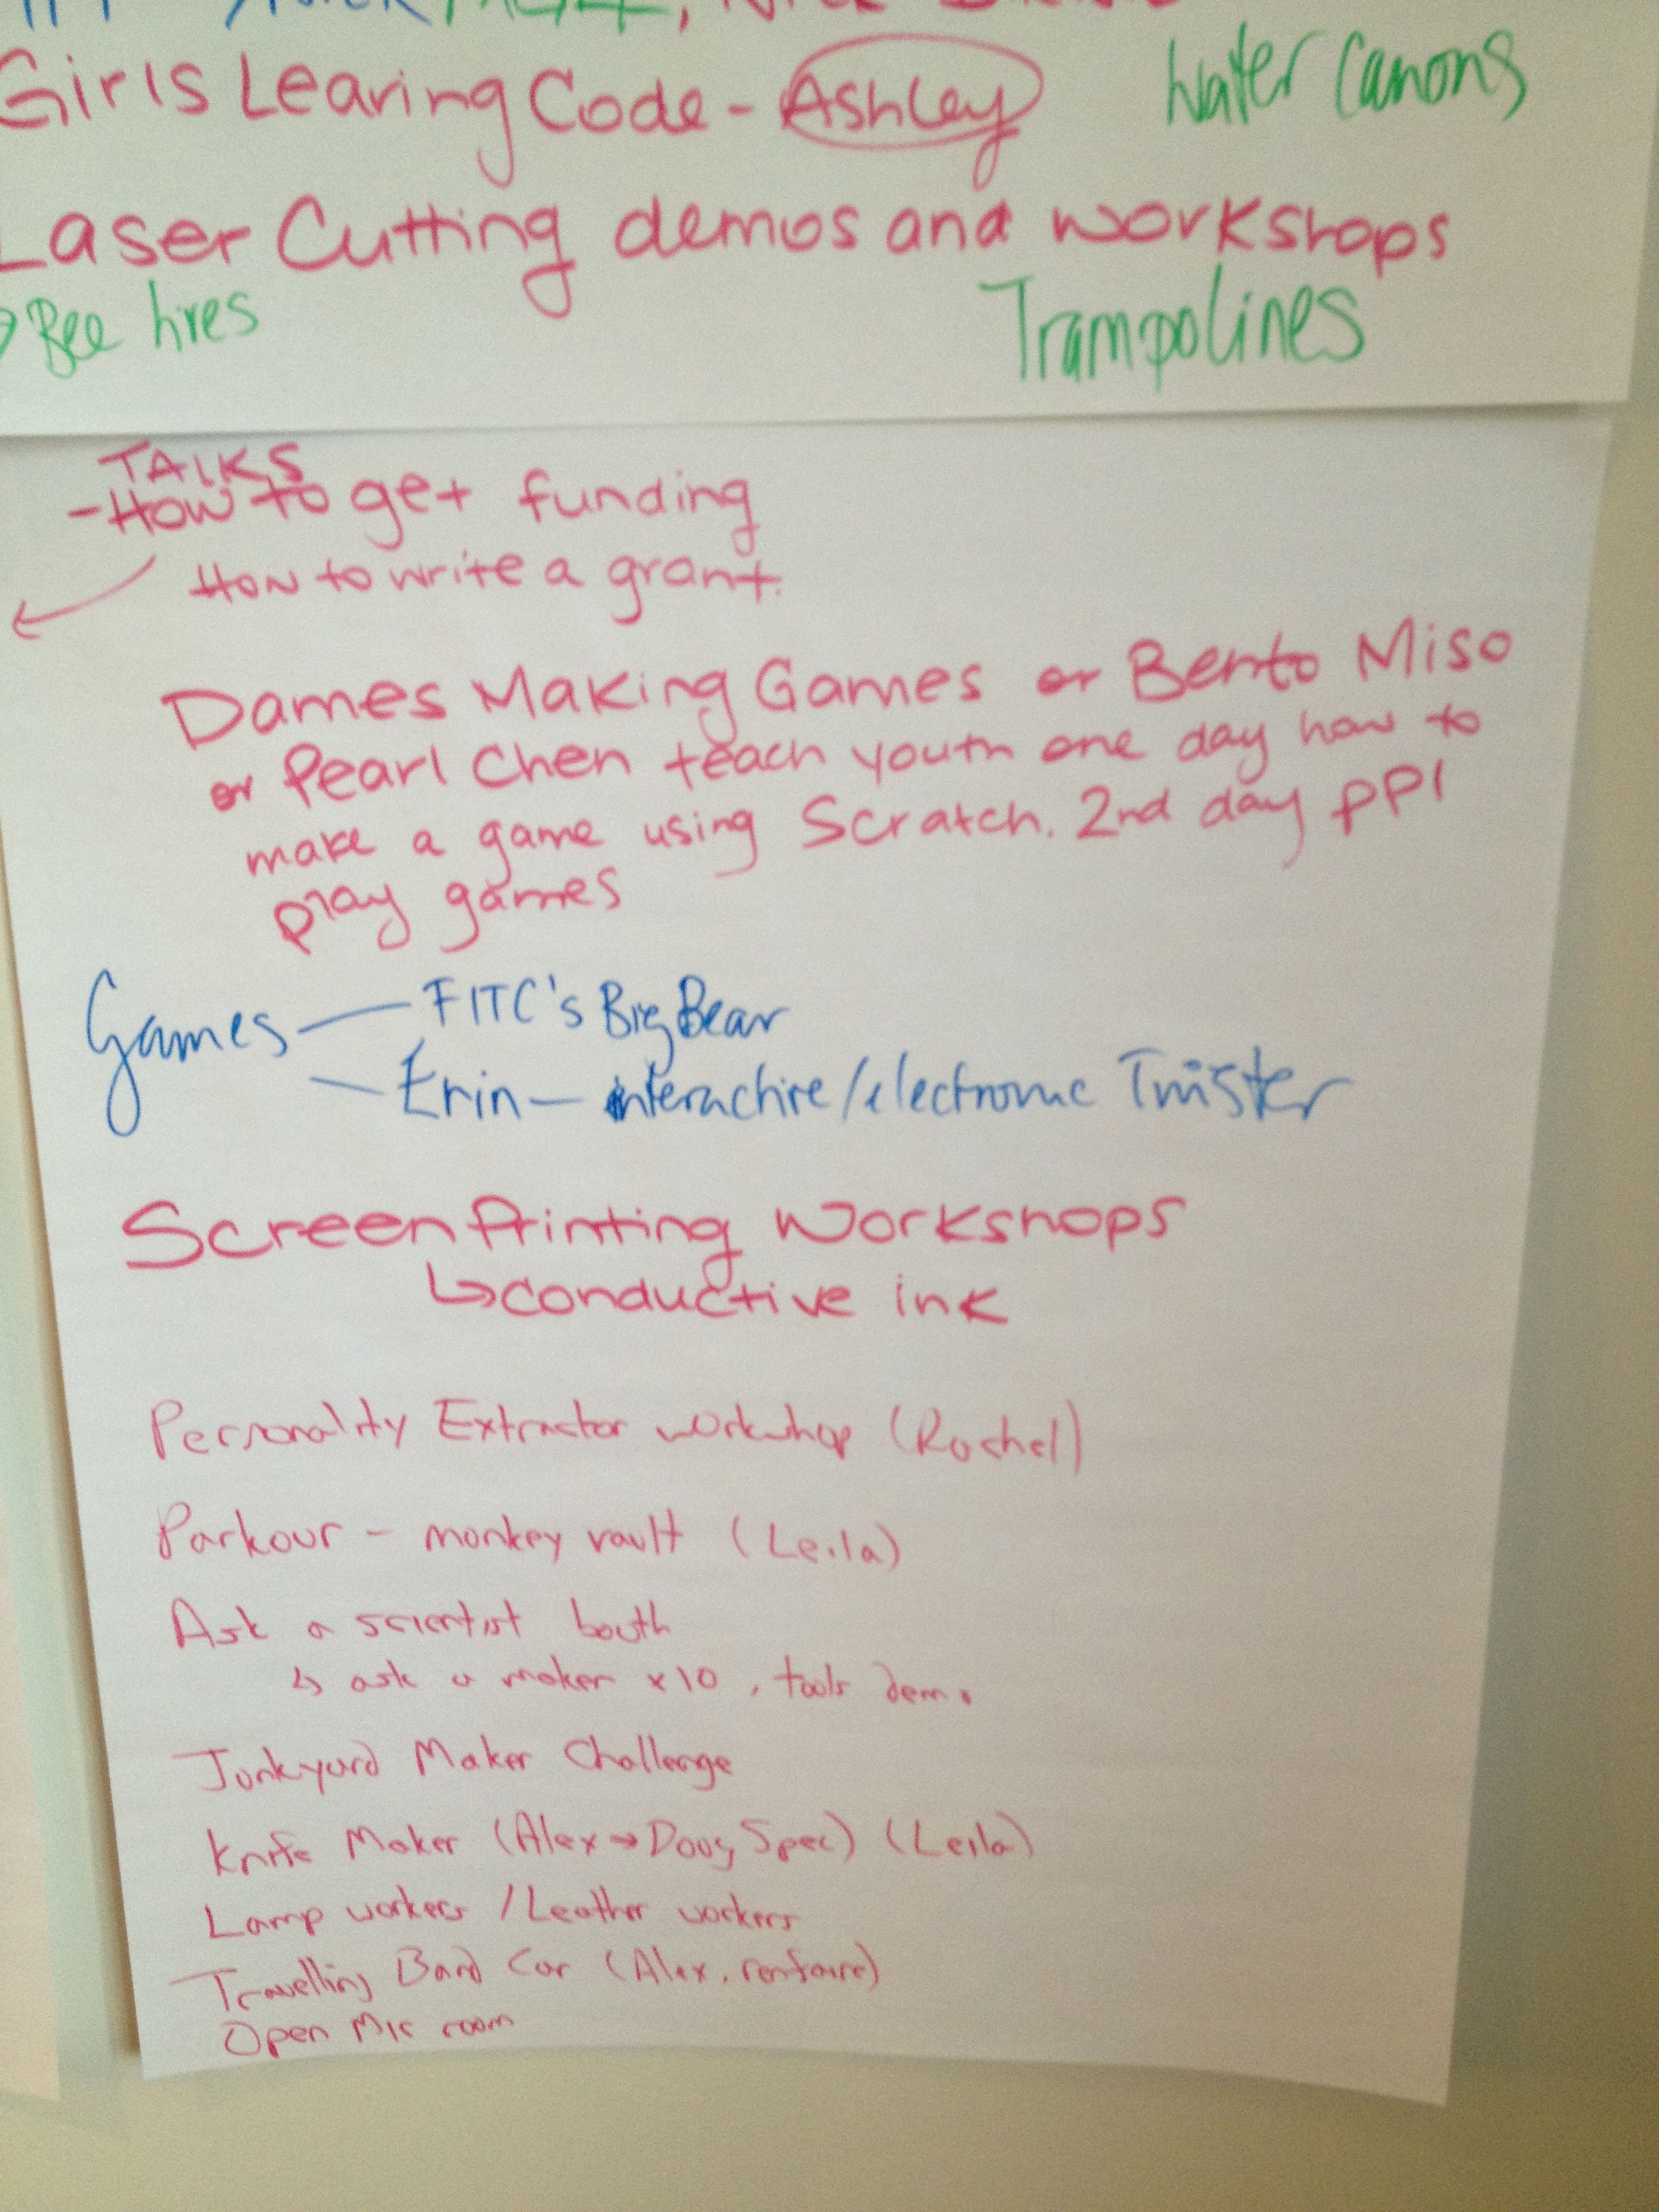 Girls Learing Code - Ashley
Water Canons
Laser Cutting demos and workshops
Bee hives
Trampolines
TALKS
- How to get funding
How to write a grant.
Dames Making Games or Bento Miso
or Pearl Chen teach youth one day how to
make a game using Scratch. 2nd day ppl
play games
Games — FITC's Big Bear
— Erin — interactive/electronic Twister
Screen Printing Workshops
↳ conductive ink
Personality Extractor workshop (Rachel)
Parkour - monkey vault (Leila)
Ask a scientist booth
↳ ask a maker x10, tools demo
Junkyard Maker Challenge
Knife Maker (Alex → Doug Spec) (Leila)
Lamp workers / Leather workers
Travelling Bard Car (Alex, renfaire)
Open Mic room